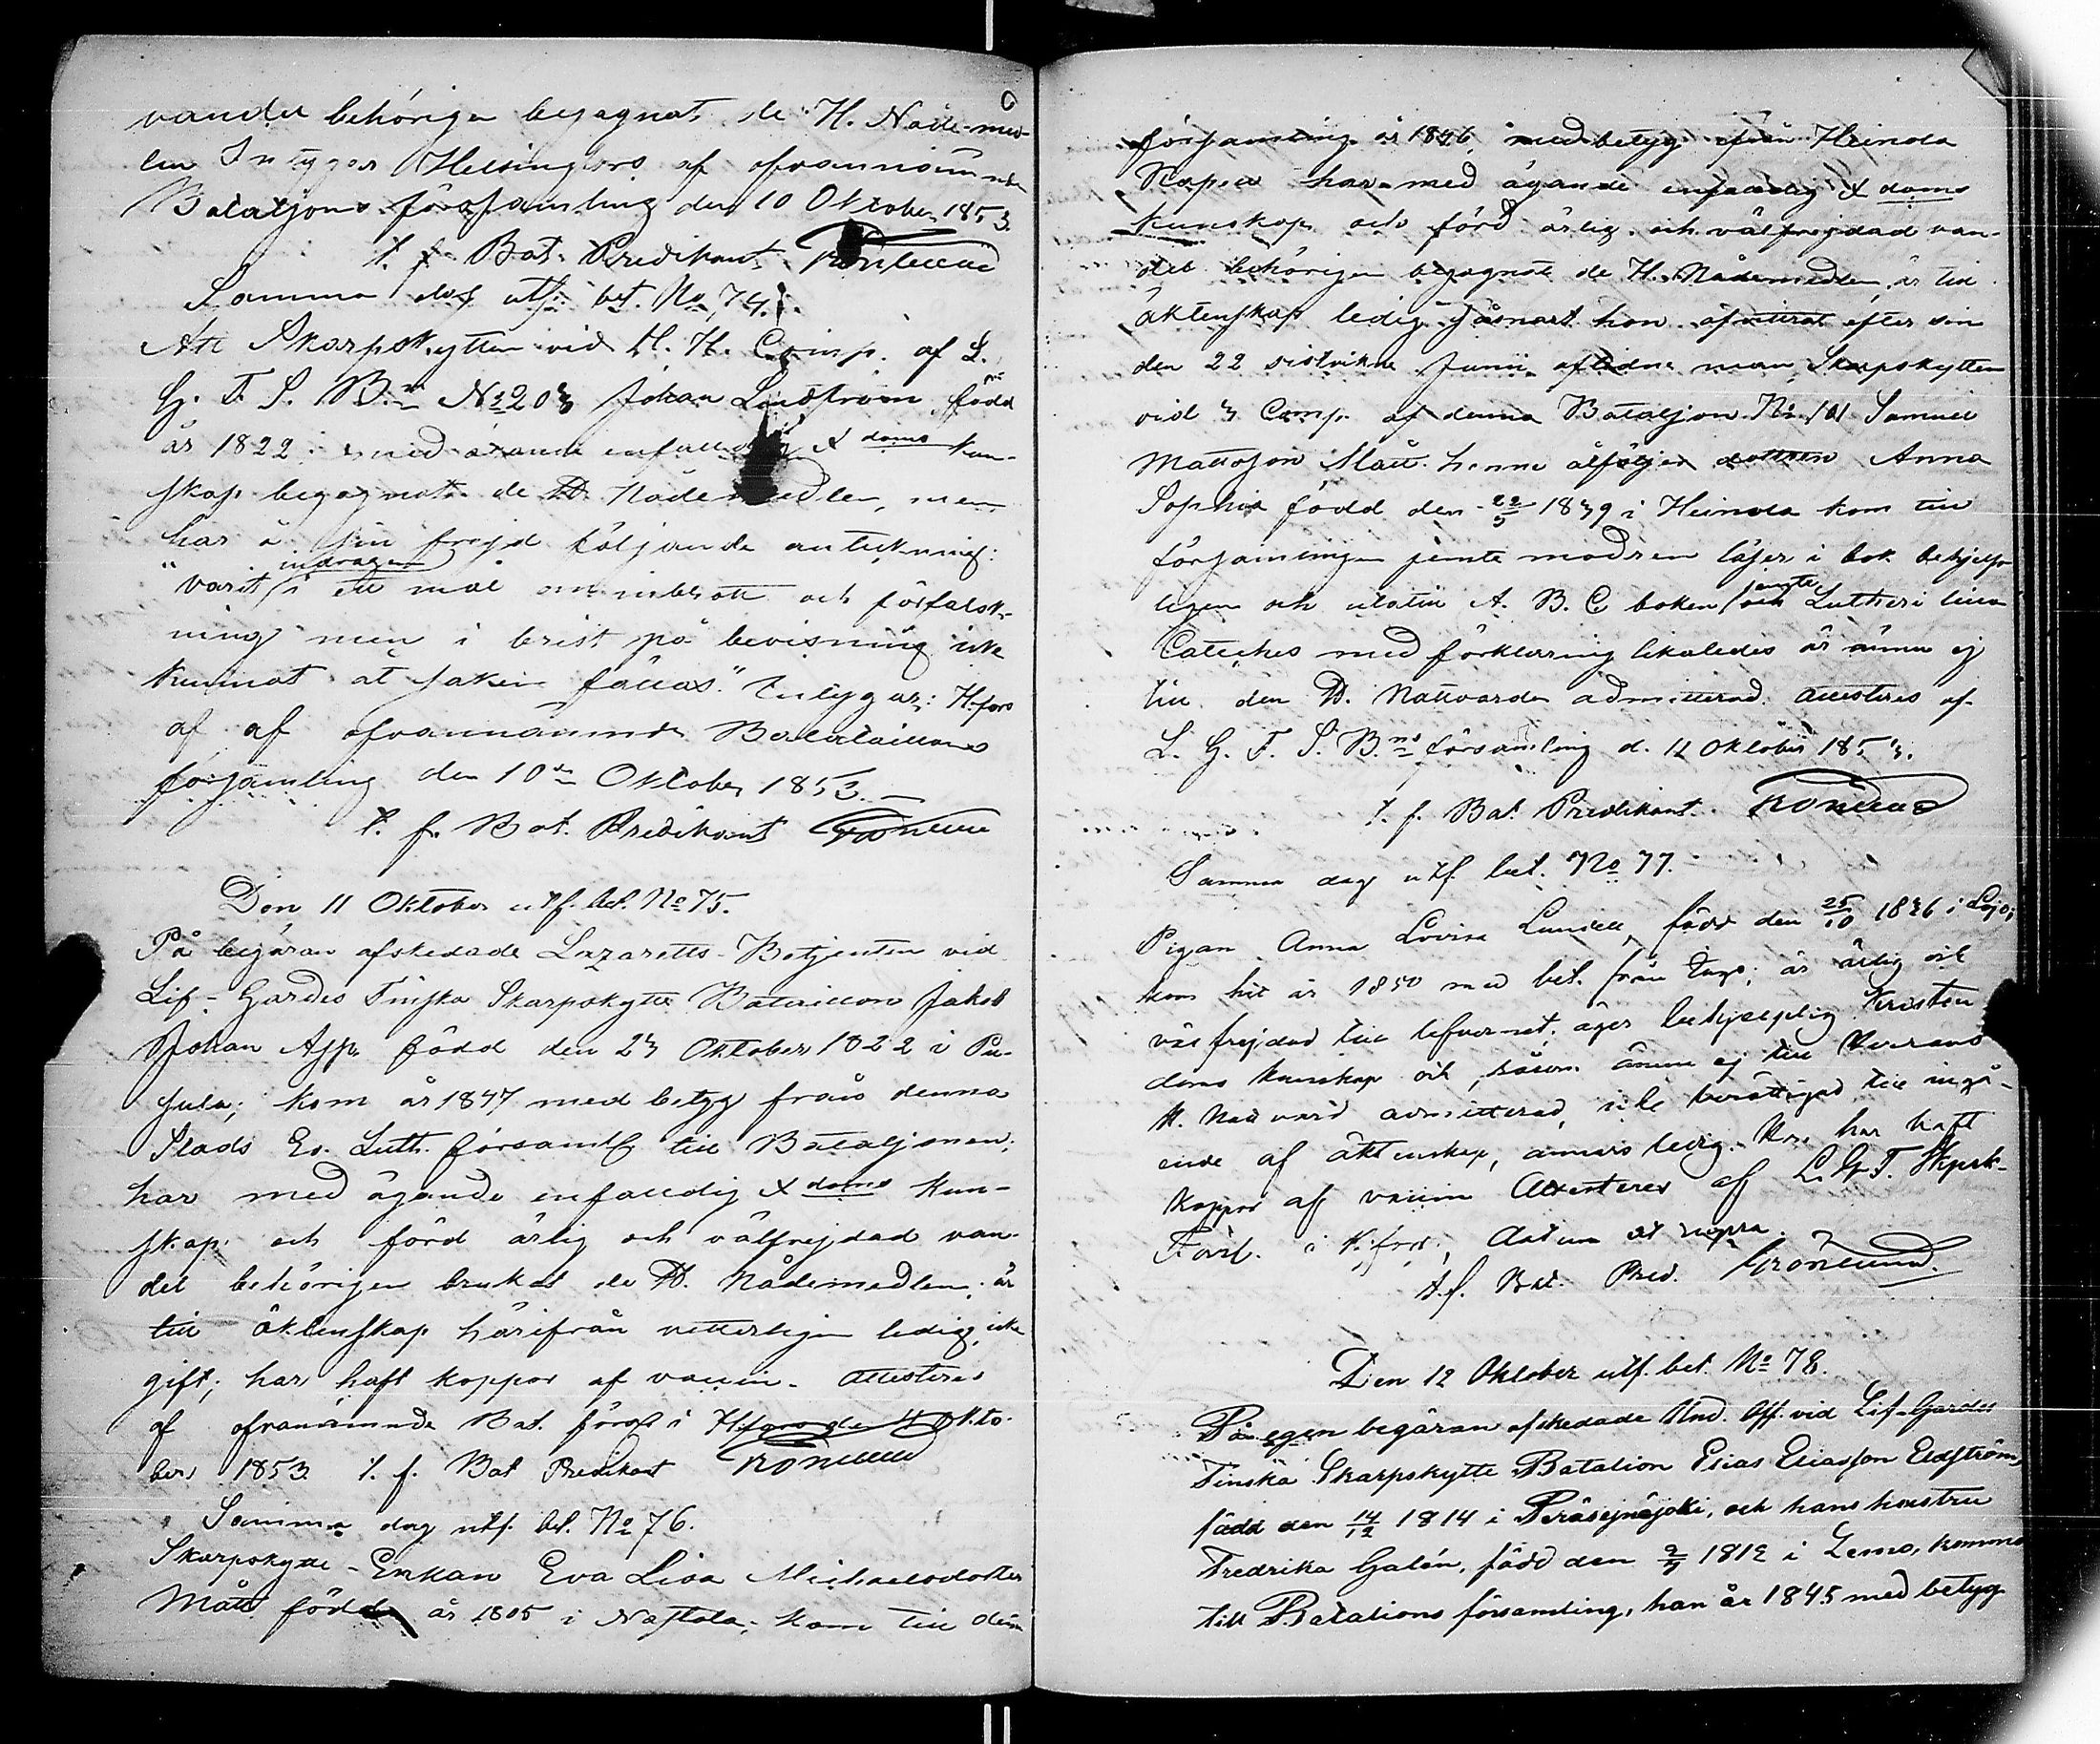 vandel behörigen begagnat de H. Nåde-med-
len Intygar Helsingfors af ofvannämnde
Bataljons församling den 10 Oktober 1853.
t. f. Bat. Predikant Grönlund
Samma dag utf. bet. No 74.
Att Skarpskytten vid H. H. Comp. af L.
G. F. S. B:n No 203 Johan Lindström, född
år 1822 med ägande enfaldig X doms kun-
skap begagnat de H. Nådemedlen, men
har å sin frejd följande anteckning:
"varit indragen i ett mål om inbrott och förfalsk-
ning men i brist på bevisning icke
kunnat at saken fällas." Intygar: H.fors
af af ofvannämnde Bataillons
församling den 10de Oktober 1853.
t. f. Bat. Predikant Grönlund
Den 11 Oktober utf. bet. No 75.
På begäran afskedade Lazaretts-Betjenten vid
Lif-Gardes Finska Skarpskytte Bataillon Jakob
Johan App, född den 23 Oktober 1822 i Pu-
sula; kom år 1847 med betyg från denna
Stads Ev. Luth. församlg till Bataljonen;
har med ägande enfaldig X doms kun-
skap och förd ärlig och välfrejdad van-
del behörigen brukat de H. Nådemedlen; är
till äktenskap härifrån vetterligen ledig, icke
gift; har haft koppor af vaccin. Attesteras
af ofvannämnde Bat. förs. i H.fors den 11 Okto-
ber 1853 t. f. Bat Predikant Grönlund
Samma dag utf. bet. No 76.
Skarpskytte-Enkan Eva Lisa Michaelsdotter
Mått född år 1805 i Nastola; kom till denna
församling år 1846 med betyg från Heinola
Kapell har med ägande enfaldig X doms
kunskap och förd ärlig och välfrejdad van-
del behörigen begagnat de H. Nådemedlen, är till
äktenskap ledig såsnart hon afvittrat efter sin
den 22 sistvikne Junii aflidne man, Skarpskytten
vid 3 Comp. af denna Bataljon No 101 Samuel
Mattsson Mått. henne åtföljer dottren Anna
Sophia född den 22/5 1839 i Heinola kom till
församlingen jemte modren läser i bok behjelp-
ligen och utatill A. B. C boken jemte Lutheri lilla
Cateches med förklaring likaledes är ännu ej
till den H. Nattvarden admitterad. Attesteras af
L. G. F. S. B:ns församling d. 11 Oktober 1853.
t. f. Bat. Predikant. Grönlund
Samma dag utf. bet. No 77.
Pigan Anna Lovisa Lundell, född den 25/10 1836 i Lojo;
kom hit år 1850 med bet. från Ingå; är ärlig och
välfrejdad till lefvernet, äger behjelplig Kristen
doms kunskap och, såsom ännu ej till Herrans
H. Nattvard admitterad, icke berättigad till ingå-
ende af äktenskap, annars ledig. Hon har haft
koppor af vaccin Attesteras af L. G. F. Skpsk-
Förs. i H.fors, datum ut supra.
t.f. Bat. Pred. Grönlund.
Den 12 Oktober utf. bet. No 78.
På egen begäran afskedade Und. Off. vid Lif-Gardes
Finska Skarpskytte Batalion Elias Eliasson Eldström,
född den 14/12 1814 i Peräsejnäjoki, och hans hustru
Fredrika Galén, född den 2/7 1812 i Lemo, kommo
till Batalions församling, han år 1845 med betyg